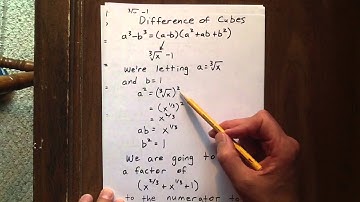 ∛x -1
Difference of Cubes
a³-b³=(a-b)(a²+ab+b²)
∛x -1
We're letting a=∛x
and b=1
a² = (∛x)²
= (x^1/3)²
= x^2/3
ab = x^1/3
b² = 1
We are going to
a factor of
(x^2/3 + x^1/3 + 1)
to the numerator to